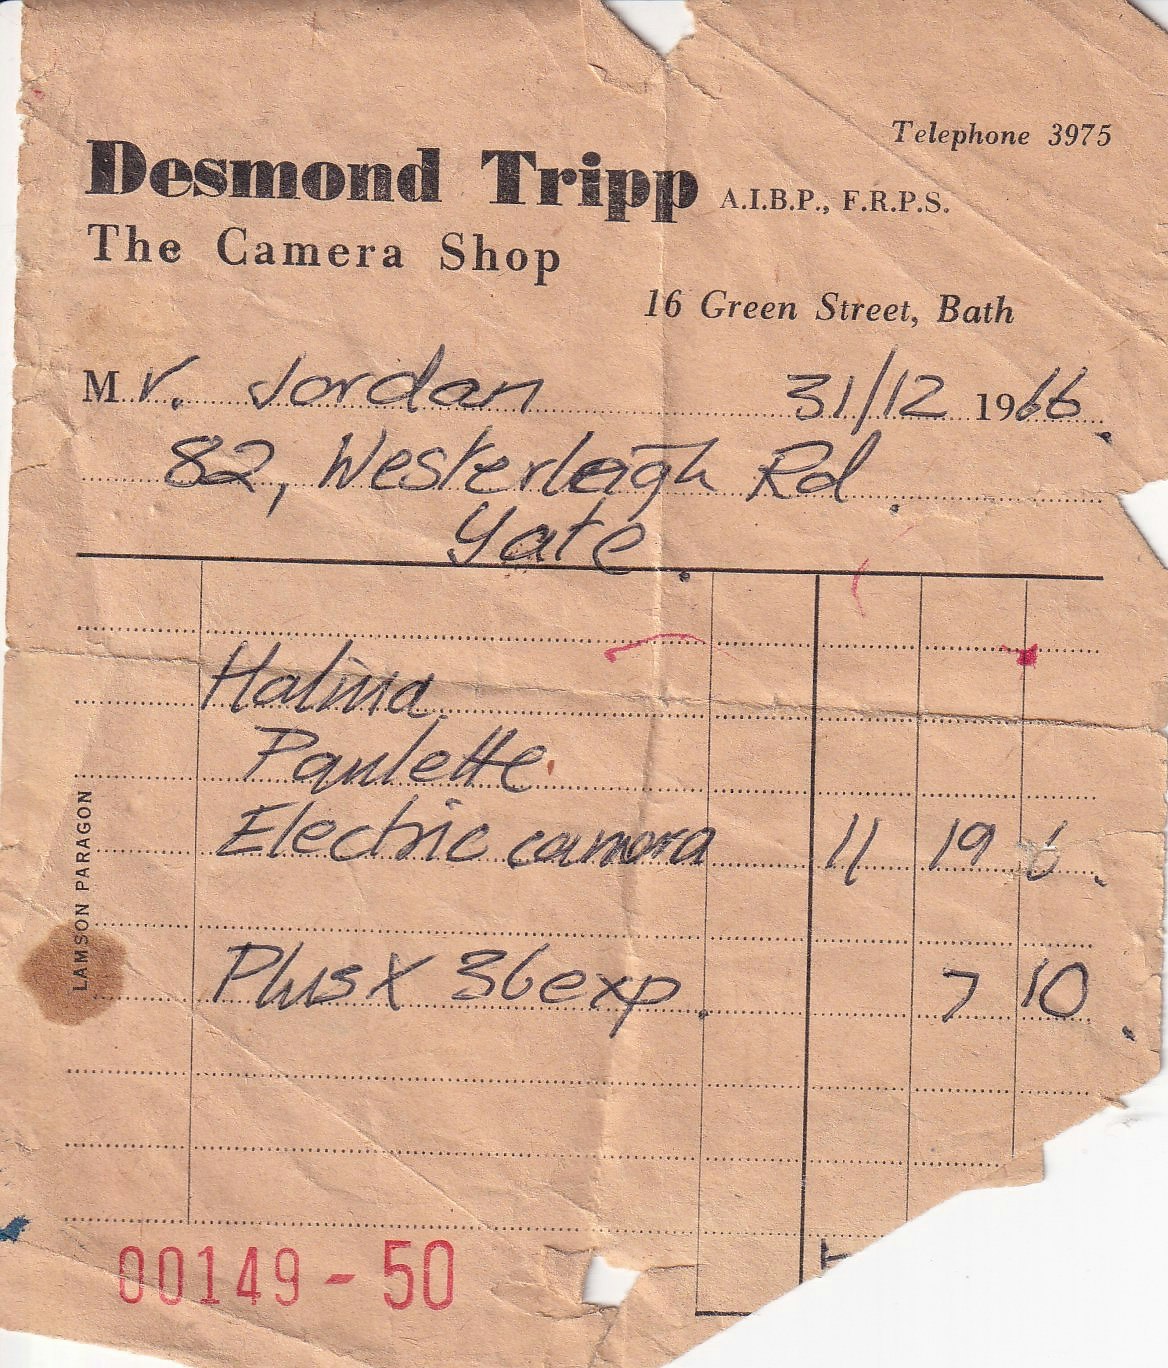 Telephone 3975
Desmond Tripp A.I.B.P., F.R.P.S.
The Camera Shop
16 Green Street, Bath
Mr. Jordan 31/12 1966
82, Westerleigh Rd.
Yate.
Halina
Paulette
Electric camera 11 19 6.
Plus X 36 exp. 7 10
LAMSON PARAGON
00149 - 50